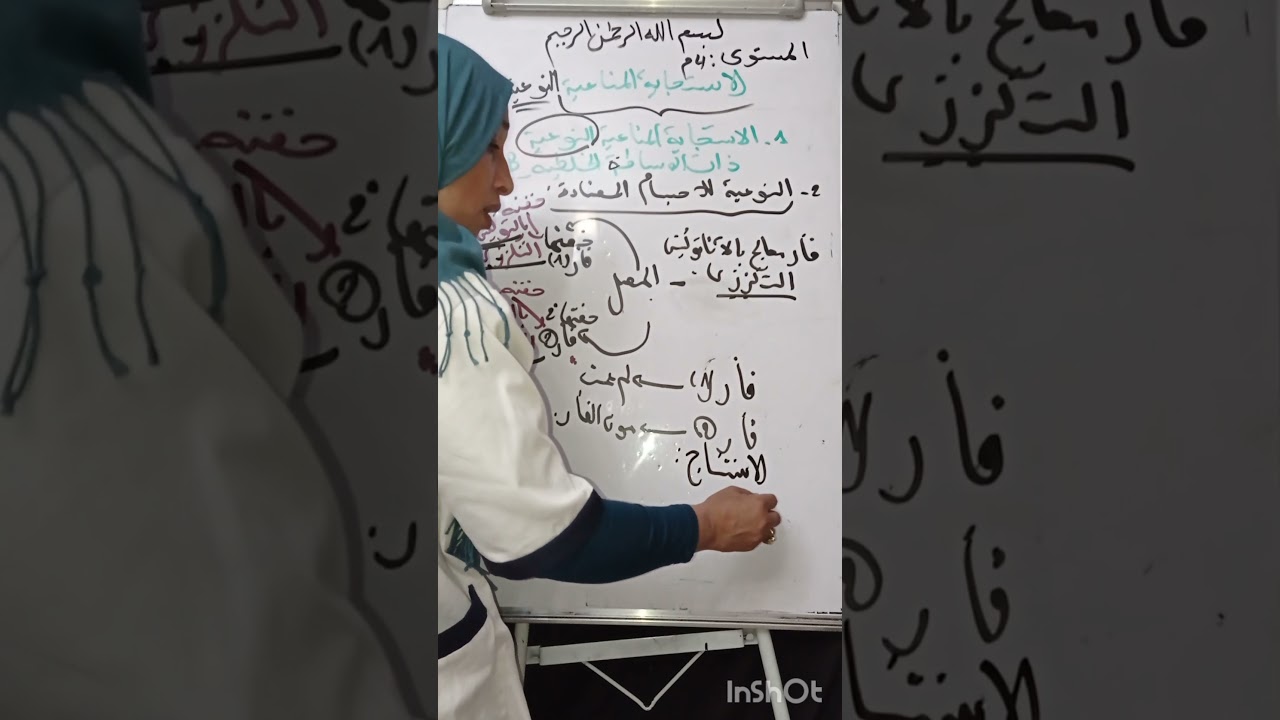 بسم الله الرحمن الرحيم
المستوى: 4م
الاستجابة المناعية النوعية
1. الاستجابة المناعية النوعية
ذات الوساطة الخلطية
2- النوعية للأجسام المضادة:
فأر معالج بالأناتوكسين
التكززي - المصل
حقنها فأر (1)
حقنها فأر 2
حقنه
فأر (1) لم يمت
فأر 2 موت الفأر.
الاستنتاج:
InShOt